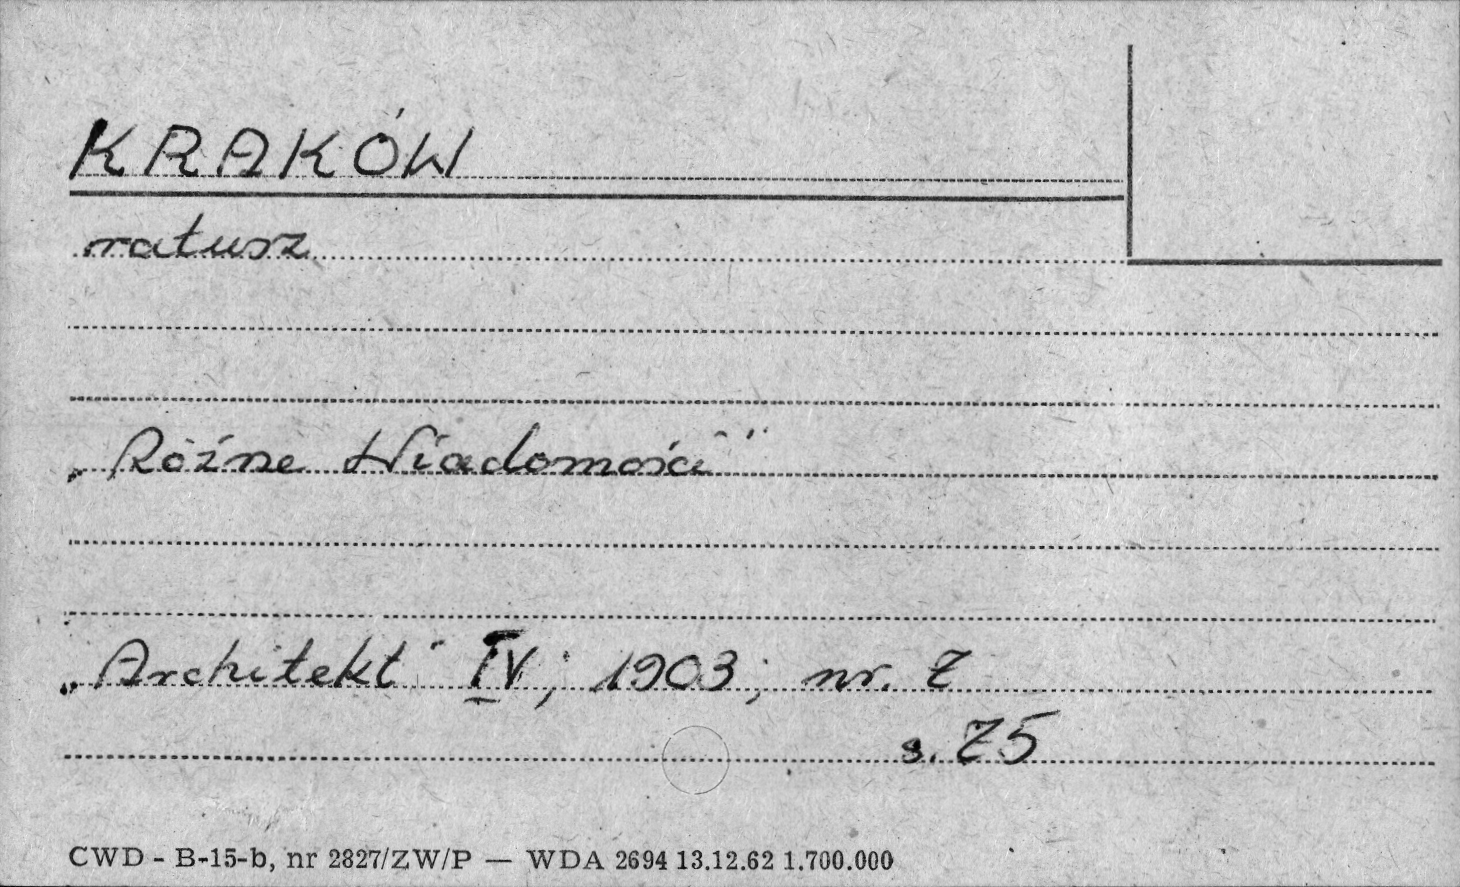 KRAKÓW
ratusz
„Różne Wiadomości"
„Architekt" IV; 1903; nr. 2
s. 25
CWD - B-15-b, nr 2827/ZW/P — WDA 2694 13.12.62 1.700.000